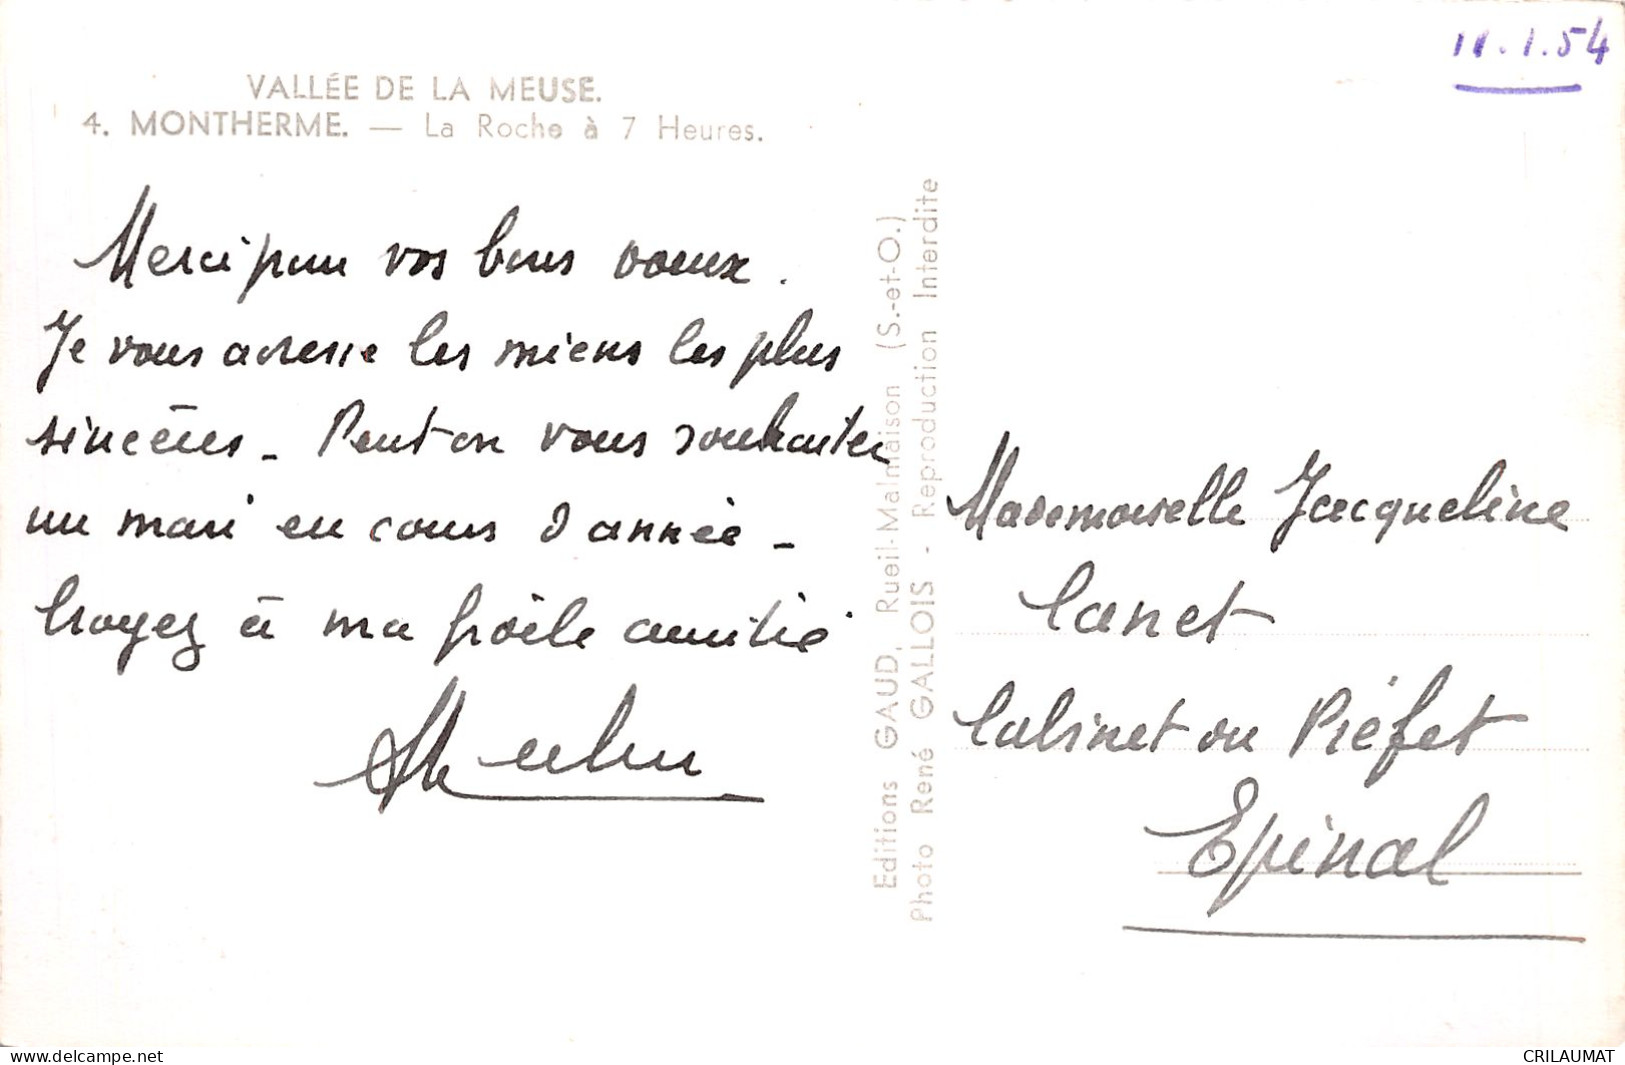 11.1.54
VALLÉE DE LA MEUSE.
4. MONTHERME. — La Roche à 7 Heures.
Merci pour vos bons voeux.
Je vous adresse les miens les plus
sincères - Peut on vous souhaiter
un mari en cours d'année -
Croyez à ma fidèle amitié
Editions GAUD, Rueil-Malmaison (S.-et-O.)
Photo René GALLOIS - Reproduction Interdite
Mademoiselle Jacqueline
Canet
Cabinet du Préfet
Epinal
www.delcampe.net
CRILAUMAT